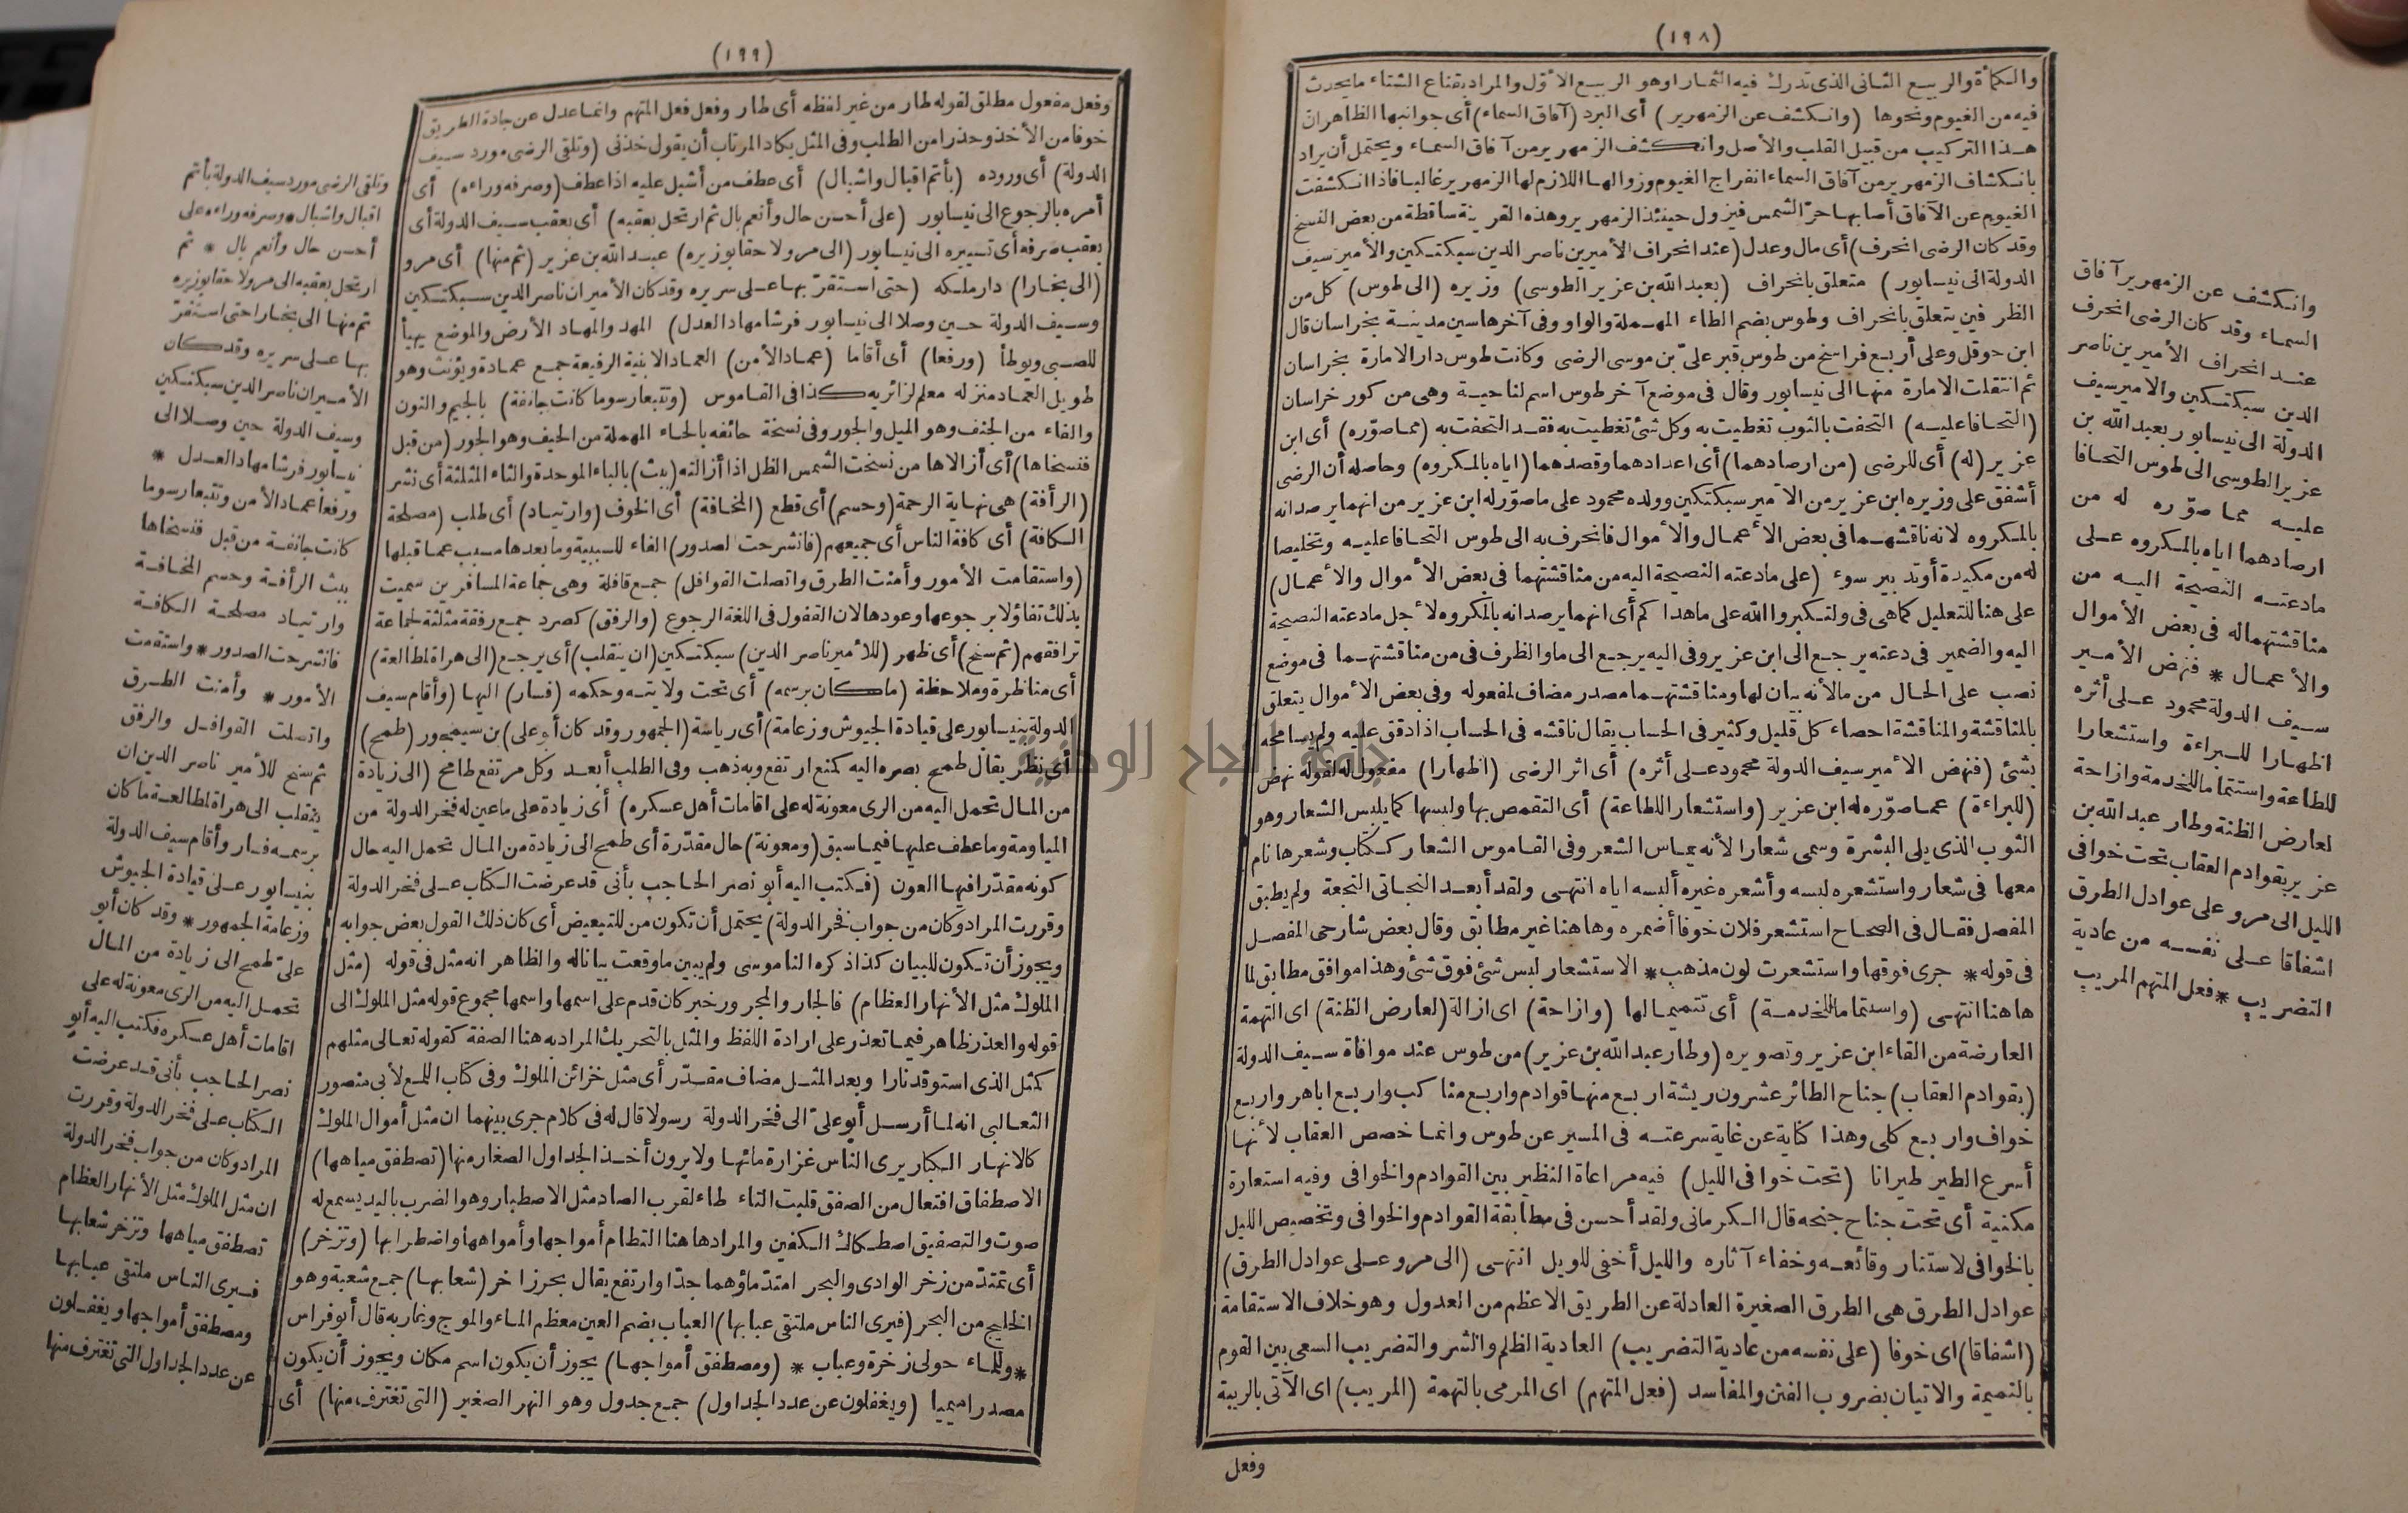 (١٩٨)
والكمأة والربيع الثاني الذي تدرك فيه الثمار اوهو الربيع الاوّل والمراد بقناع الشتاء ما يحدث
فيه من الغيوم ونحوها (وانكشف عن الزمهرير) أى البرد (آفاق السماء) أى جوانبها الظاهر ان
هذا التركيب من قبيل القلب والأصل وانكشف الزمهرير من آفاق السماء ويحتمل أن يراد
بانكشاف الزمهرير من آفاق السماء انفراج الغيوم وزوالها اللازم لها الزمهرير غالبا فاذا انكشفت
الغيوم عن الآفاق أصابها حرّ الشمس فيزول حينئذ الزمهرير وهذه القرينة ساقطة من بعض النسخ
وقد كان الرضى انحرف) أى مال وعدل (عند انحراف الأميرين ناصر الدين سبكتكين والأمير سيف
الدولة الى نيسابور) متعلق بانحراف (بعبد الله بن عزير الطوسى) وزيره (الى طوس) كل من
الظرفين يتعلق بانحراف وطوس بضم الطاء المهملة والواو وفى آخرها سين مدينة بخراسان قال
ابن حوقل وعلى أربع فراسخ من طوس قبر علىّ بن موسى الرضى وكانت طوس دار الامارة بخراسان
ثم انتقلت الامارة منها الى نيسابور وقال فى موضع آخر طوس اسم لناحية وهى من كور خراسان
(التحافا عليه) التحفت بالثوب تغطيت به وكل شئ تغطيت به فقد التحفت به (مما صوّره) أى ابن
عزير (له) أى للرضى (من ارصادهما) أى اعدادهما وقصدهما (اياه بالمكروه) وحاصله أن الرضى
أشفق على وزيره ابن عزير من الأمير سبكتكين وولده محمود على ما صوّر له ابن عزير من انهما يرصدانه
بالمكروه لانه ناقشهما فى بعض الأعمال والأموال فانحرف به الى طوس التحافا عليه وتخليصا
له من مكيدة أو تدبير سوء (على ما دعته النصيحة اليه من مناقشتهما فى بعض الأموال والأعمال)
على هنا للتعليل كما هى فى ولتكبروا الله على ما هداكم أى انهما يرصدانه بالمكروه لأجل ما دعته النصيحة
اليه والضمير فى دعته يرجع الى ابن عزير وفى اليه يرجع الى ما والظرف فى من مناقشتهما فى موضع
نصب على الحال من ما لأنه بيان لها ومناقشتهما مصدر مضاف لمفعوله وفى بعض الأموال يتعلق
بالمناقشة والمناقشة احصاء كل قليل وكثير فى الحساب يقال ناقشه فى الحساب اذا دقق عليه ولم يسامحه
بشئ (فنهض الأمير سيف الدولة محمود على أثره) أى اثر الرضى (اظهارا) مفعول له لقوله نهض
(للبراءة) عما صوّره له ابن عزير (واستشعار اللطاعة) أى التقمص بها ولبسها كما يلبس الشعار وهو
الثوب الذى يلى البشرة وسمى شعارا لأنه يماس الشعر وفى القاموس الشعار ككتاب وشعرها نام
معها فى شعار واستشعره لبسه وأشعره غيره ألبسه اياه انتهى ولقد أبعد النجاتى النجعة ولم يطبق
المفصل فقال فى الصحاح استشعر فلان خوفا أضمره وها هنا غير مطابق وقال بعض شارحى المفصل
فى قوله * جرى فوقها واستشعرت لون مذهب * الاستشعار لبس شئ فوق شئ وهذا موافق مطابق لما
ها هنا انتهى (واستتما ما للخدمة) أى تتميما لها (وازاحة) اى ازالة (لعارض الظنة) اى التهمة
العارضة من القاء ابن عزير وتصويره (وطار عبد الله بن عزير) من طوس عند موافاة سيف الدولة
(بقوادم العقاب) جناح الطائر عشرون ريشة اربع منها قوادم واربع مناكب واربع اباهر واربع
خواف واربع كلى وهذا كناية عن غاية سرعته فى المسير عن طوس وانما خصص العقاب لأنها
أسرع الطير طيرانا (تحت خوافى الليل) فيه مراعاة النظير بين القوادم والخوافى وفيه استعارة
مكنية أى تحت جناح جنحه قال الكرمانى ولقد أحسن فى مطابقة القوادم والخوافى وتخصيص الليل
بالخوافى لاستتار وقائعه وخفاء آثاره والليل أخفى للويل انتهى (الى مرو على عوادل الطرق)
عوادل الطرق هى الطرق الصغيرة العادلة عن الطريق الاعظم من العدول وهو خلاف الاستقامة
(اشفاقا) اى خوفا (على نفسه من عادية التضريب) العادية الظلم والشر والتضريب السعى بين القوم
بالنميمة والاتيان بضروب الفتن والمفاسد (فعل المتهم) اى المرمى بالتهمة (المريب) اى الآتى بالريبة
وفعل
وانكشف عن الزمهرير آفاق
السماء وقد كان الرضى انحرف
عند انحراف الأميرين ناصر
الدين سبكتكين والامير سيف
الدولة الى نيسابور بعبد الله بن
عزير الطوسى الى طوس التحافا
عليه مما صوّره له من
ارصادهما اياه بالمكروه على
ما دعته النصيحة اليه من
مناقشتهما له فى بعض الأموال
والأعمال * فنهض الأمير
سيف الدولة محمود على أثره
اظهارا للبراءة واستشعارا
للطاعة واستتماما للخدمة وازاحة
لعارض الظنة وطار عبد الله بن
عزير بقوادم العقاب تحت خوافى
الليل الى مرو على عوادل الطرق
اشفاقا على نفسه من عادية
التضريب * فعل المتهم المريب
(١٩٩)
وفعل مفعول مطلق لقوله طار من غير لفظه أى طار وفعل فعل المتهم وانما عدل عن جادة الطريق
خوفا من الأخذ وحذرا من الطلب وفى المثل يكاد المرتاب أن يقول خذنى (وتلقى الرضى مورد سيف
الدولة) أى وروده (بأتم اقبال واشبال) أى عطف من أشبل عليه اذا عطف (وصرفه وراءه) أى
أمره بالرجوع الى نيسابور (على أحسن حال وأنعم بال ثم ارتحل بعقبه) أى بعقب سيف الدولة أى
بعقب صرفه أى تسييره الى نيسابور (الى مرو لاحقا بوزيره) عبد الله بن عزير (ثم منها) أى مرو
(الى بخارا) دار ملكه (حتى استقرّ بها على سريره وقد كان الأميران ناصر الدين سبكتكين
وسيف الدولة حين وصلا الى نيسابور فرشا مهاد العدل) المهد والمهاد الأرض والموضع يهيأ
للصبى ويوطأ (ورفعا) أى أقاما (عماد الأمن) العماد الابنية الرفيعة جمع عمادة ويؤنث وهو
طويل العماد منزله معلم لزائريه كذا فى القاموس (وتتبعا رسوما كانت جانفة) بالجيم والنون
والفاء من الجنف وهو الميل والجور وفى نسخة حائفه بالحاء المهملة من الحيف وهو الجور (من قبل
فنسخاها) أى أزالاها من نسخت الشمس الظل اذا أزالته (ببث) بالباء الموحدة والثاء المثلثة أى نشر
(الرأفة) هى نهاية الرحمة (وحسم) أى قطع (المخافة) أى الخوف (وارتياد) أى طلب (مصلحة
الكافة) أى كافة الناس أى جميعهم (فانشرحت الصدور) الفاء للسببية وما بعدها مسبب عما قبلها
(واستقامت الأمور وأمنت الطرق واتصلت القوافل) جمع قافلة وهى جماعة المسافرين سميت
بذلك تفاؤلا برجوعها وعودها لان القفول فى اللغة الرجوع (والرفق) كصرد جمع رفقة مثلثة لجماعة
ترافقهم (ثم سنح) أى ظهر (للأمير ناصر الدين) سبكتكين (ان ينقلب) أى يرجع (الى هراة لمطالعة)
أى مناظرة وملاحظة (ما كان برسمه) أى تحت ولايته وحكمه (فسار) اليها (وأقام سيف
الدولة بنيسابور على قيادة الجيوش وزعامة) أى رياسة (الجمهور وقد كان أبو على) بن سيمجور (طمح)
أى نظر يقال طمح بصره اليه كمنع ارتفع وبه ذهب وفى الطلب أبعد وكل مرتفع طامح (الى زيادة
من المال تحمل اليه من الرى معونة له على اقامات أهل عسكره) أى زيادة على ما عين له فخر الدولة من
المياومة وما عطف عليها فيما سبق (ومعونة) حال مقدّرة أى طمح الى زيادة من المال تحمل اليه حال
كونه مقدّرا فيها العون (فكتب اليه أبو نصر الحاجب بأنى قد عرضت الكتاب على فخر الدولة
وقررت المراد وكان من جواب فخر الدولة) يحتمل أن تكون من للتبعيض أى كان ذلك القول بعض جوابه
ويجوز أن تكون للبيان كذا ذكره الناموسى ولم يبين ما وقعت بيانا له والظاهر انه مثل فى قوله (مثل
الملوك مثل الأنهار العظام) فالجار والمجرور خبر كان قدم على اسمها واسمها مجموع قوله مثل الملوك الى
قوله والعذر ظاهر فيما تعذر على ارادة اللفظ والمثل بالتحريك المراد به هنا الصفة كقوله تعالى مثلهم
كمثل الذى استوقد نارا وبعد المثل مضاف مقدّر أى مثل خزائن الملوك وفى كتاب اللمع لأبى منصور
الثعالبى انه لما أرسل أبو علىّ الى فخر الدولة رسولا قال له فى كلام جرى بينهما ان مثل أموال الملوك
كالانهار الكبار يرى الناس غزارة مائها ولا يرون أخذ الجداول الصغار منها (تصطفق مياهها)
الاصطفاق افتعال من الصفق قلبت التاء طاء لقرب الصاد مثل الاصطبار وهو الضرب باليد يسمع له
صوت والتصفيق اصطكاك الكفين والمراد ها هنا التطام أمواجها وأمواهها واضطرابها (وتزخر)
أى تمتدّ من زخر الوادى والبحر امتدّ ماؤهما جدّا وارتفع يقال بحر زاخر (شعابها) جمع شعبة وهو
الخليج من البحر (فيرى الناس ملتقى عبابها) العباب بضم العين معظم الماء والموج وغاربه قال أبو فراس
* وللماء حولى زخرة وعباب * (ومصطفق أمواجها) يجوز أن يكون اسم مكان ويجوز أن يكون
مصدرا ميميا (ويغفلون عن عدد الجداول) جمع جدول وهو النهر الصغير (التى تغترف منها) أى
وتلقى الرضى مورد سيف الدولة بأتم
اقبال واشبال * وصرفه وراءه على
أحسن حال وأنعم بال * ثم
ارتحل بعقبه الى مرو لاحقا بوزيره
ثم منها الى بخارا حتى استقرّ
بها على سريره وقد كان
الأميران ناصر الدين سبكتكين
وسيف الدولة حين وصلا الى
نيسابور فرشا مهاد العدل *
ورفعا عماد الأمن وتتبعا رسوما
كانت جانفة من قبل فنسخاها
ببث الرأفة وحسم المخافة
وارتياد مصلحة الكافة
فانشرحت الصدور * واستقمت
الأمور * وأمنت الطرق
واتصلت القوافل والرفق
ثم سنح للأمير ناصر الدين ان
ينقلب الى هراة لمطالعة ما كان
برسمه فسار وأقام سيف الدولة
بنيسابور على قيادة الجيوش
وزعامة الجمهور * وقد كان أبو
علىّ طمح الى زيادة من المال
تحمل اليه من الرى معونة له على
اقامات أهل عسكره فكتب اليه أبو
نصر الحاجب بأنى قد عرضت
الكتاب على فخر الدولة وقررت
المراد وكان من جواب فخر الدولة
ان مثل الملوك مثل الأنهار العظام
تصطفق مياهها وتزخر شعابها
فيرى الناس ملتقى عبابها
ومصطفق أمواجها ويغفلون
عن عدد الجداول التى تغترف منها
جامعة النجاح الوطنية